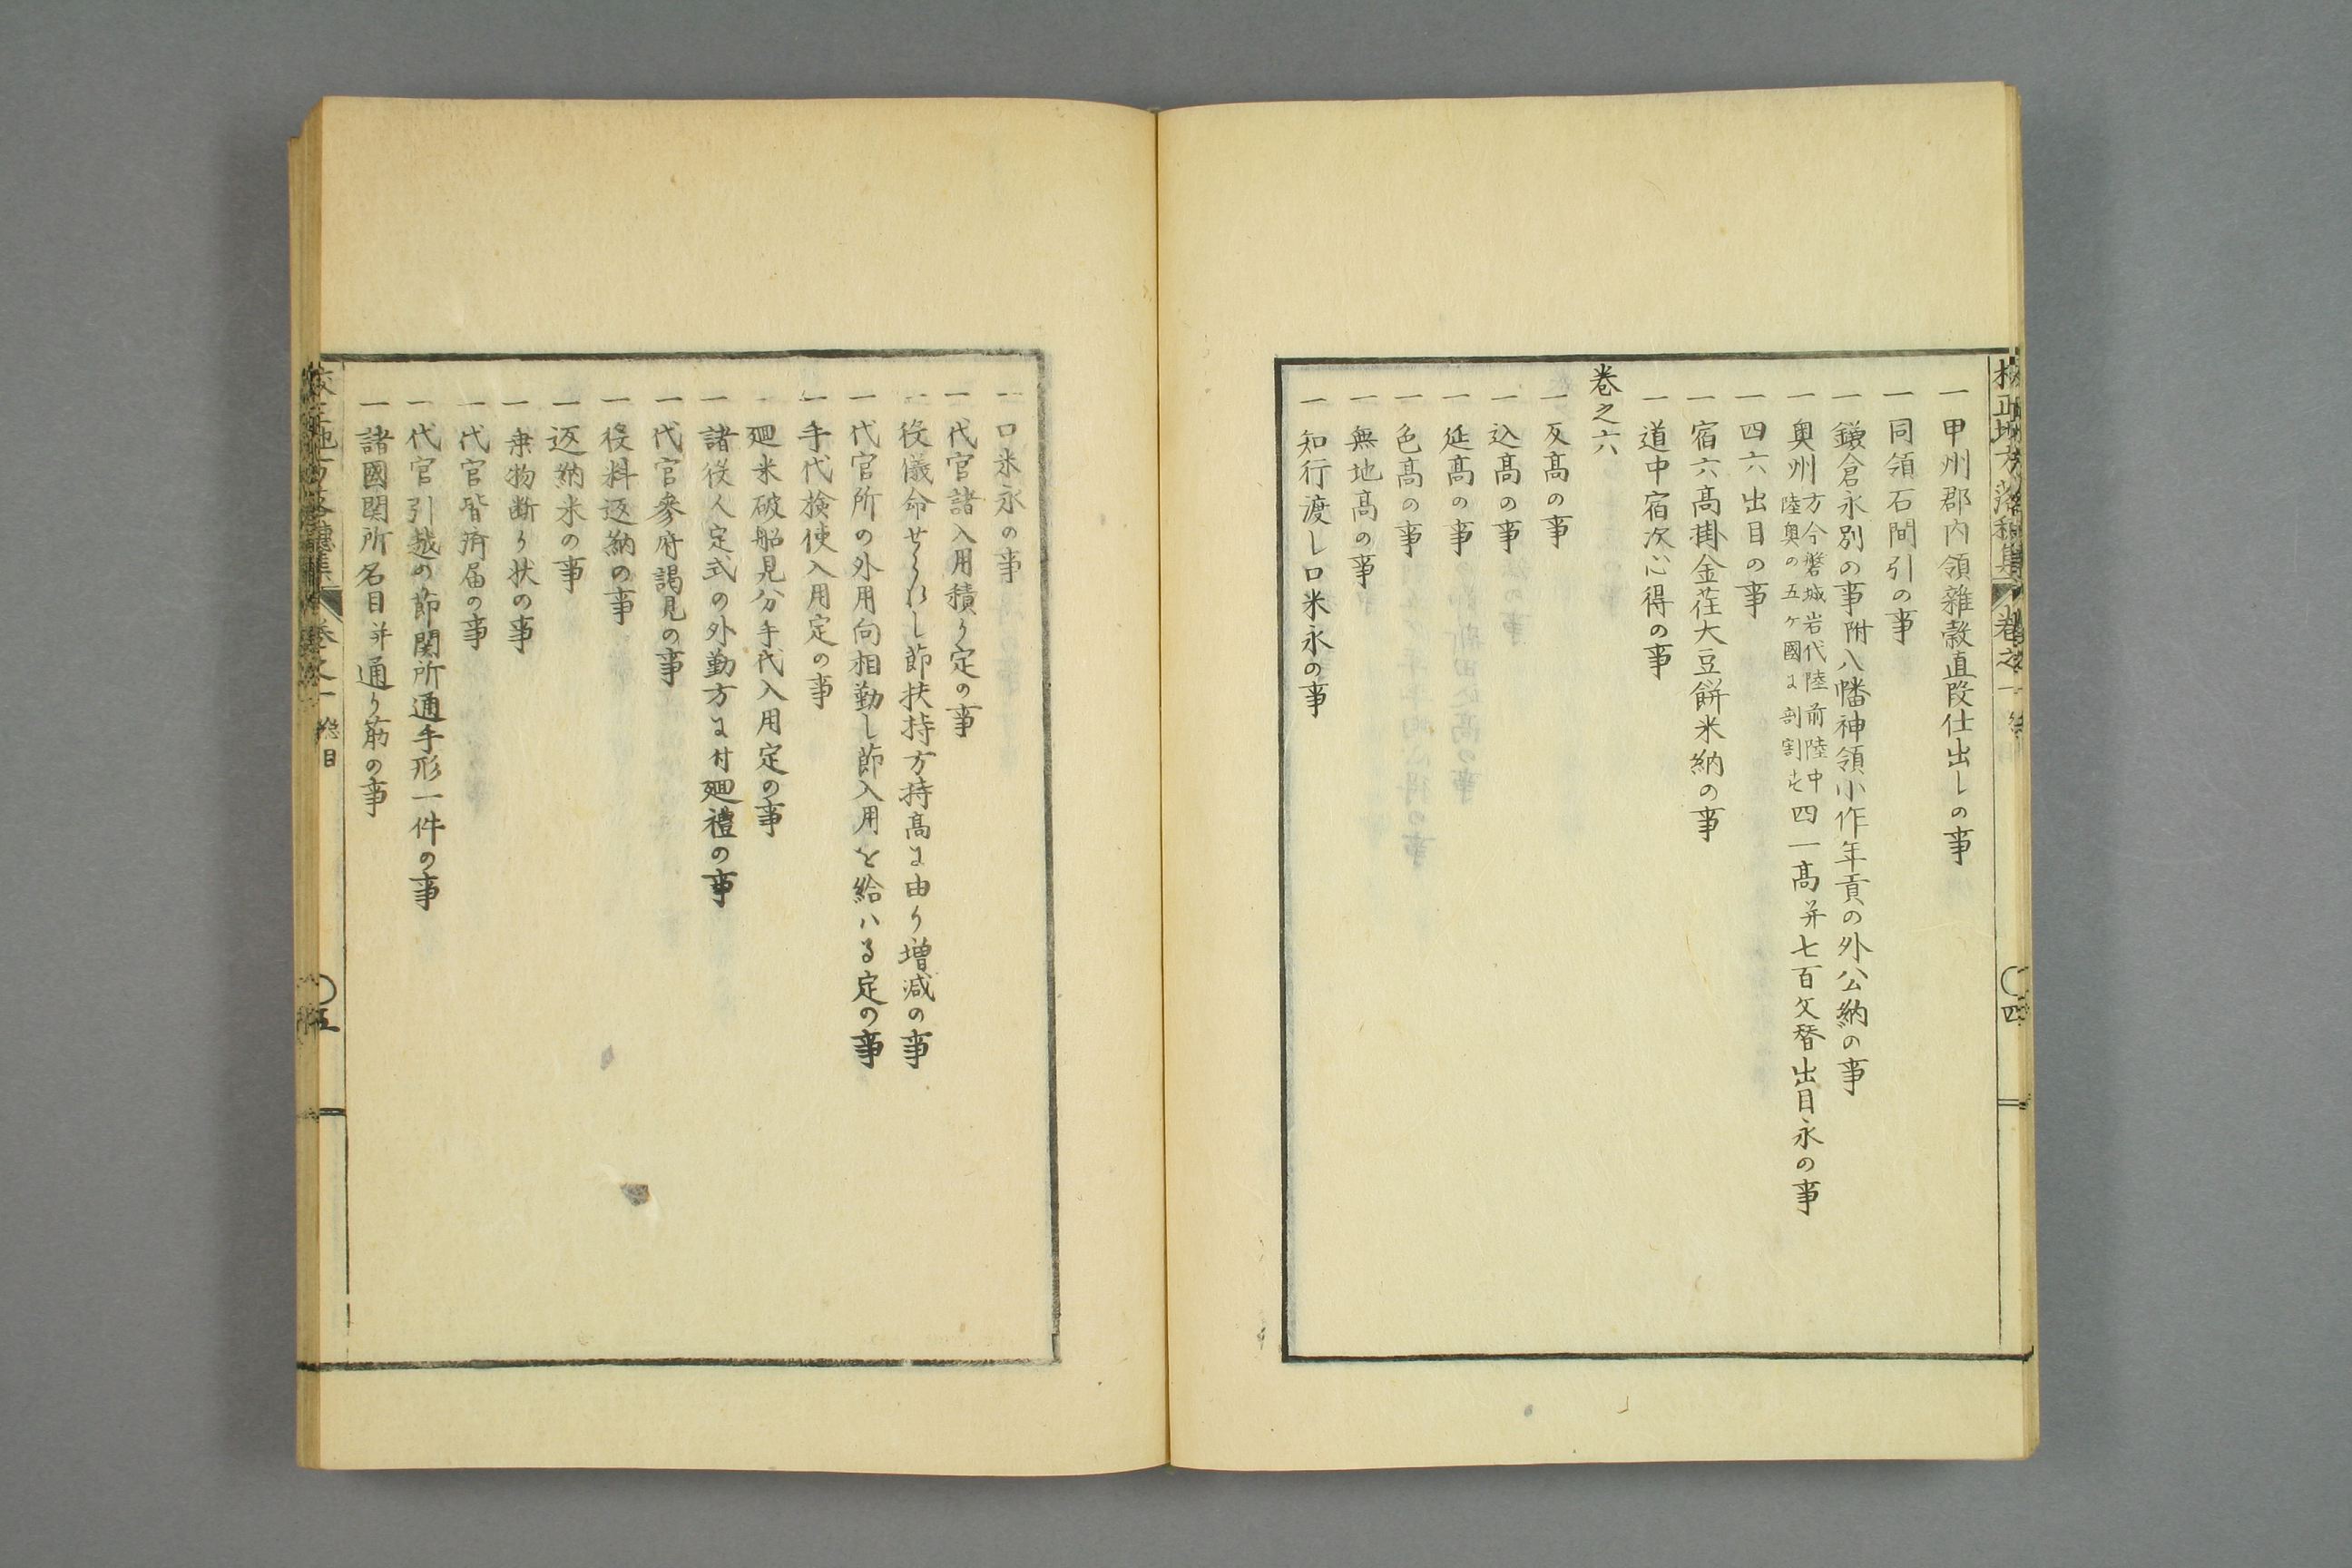 一甲州郡内領雜穀直段仕出しの事
一同領石間引の事
一鎌倉永別の事附八幡神領小作年貢の外公納の事
一奥州方今磐城岩代陸前陸中陸奥の五ヶ國に剖割す四一髙并七百文替出目永の事
一四六出目の事
一宿六髙掛金荏大豆餅米納の事
一道中宿次心得の事
巻之六
一反髙の事
一込髙の事
一延髙の事
一色髙の事
一無地髙の事
一知行渡し口米永の事
一口米永の事
一代官諸入用積り定の事
一役儀命せられし節扶持方持髙に由り増減の事
一代官所の外用向相勤し節入用を給ハる定の事
一手代検使入用定の事
一廻米破船見分手代入用定の事
一諸役人定式の外勤方に付廻禮の事
一代官參府謁見の事
一役料返納の事
一返納米の事
一乗物断り状の事
一代官皆済届の事
一代官引越の節関所通手形一件の事
一諸國関所名目并通り筋の事
校正地方落穂集 巻之一 総目 〇五